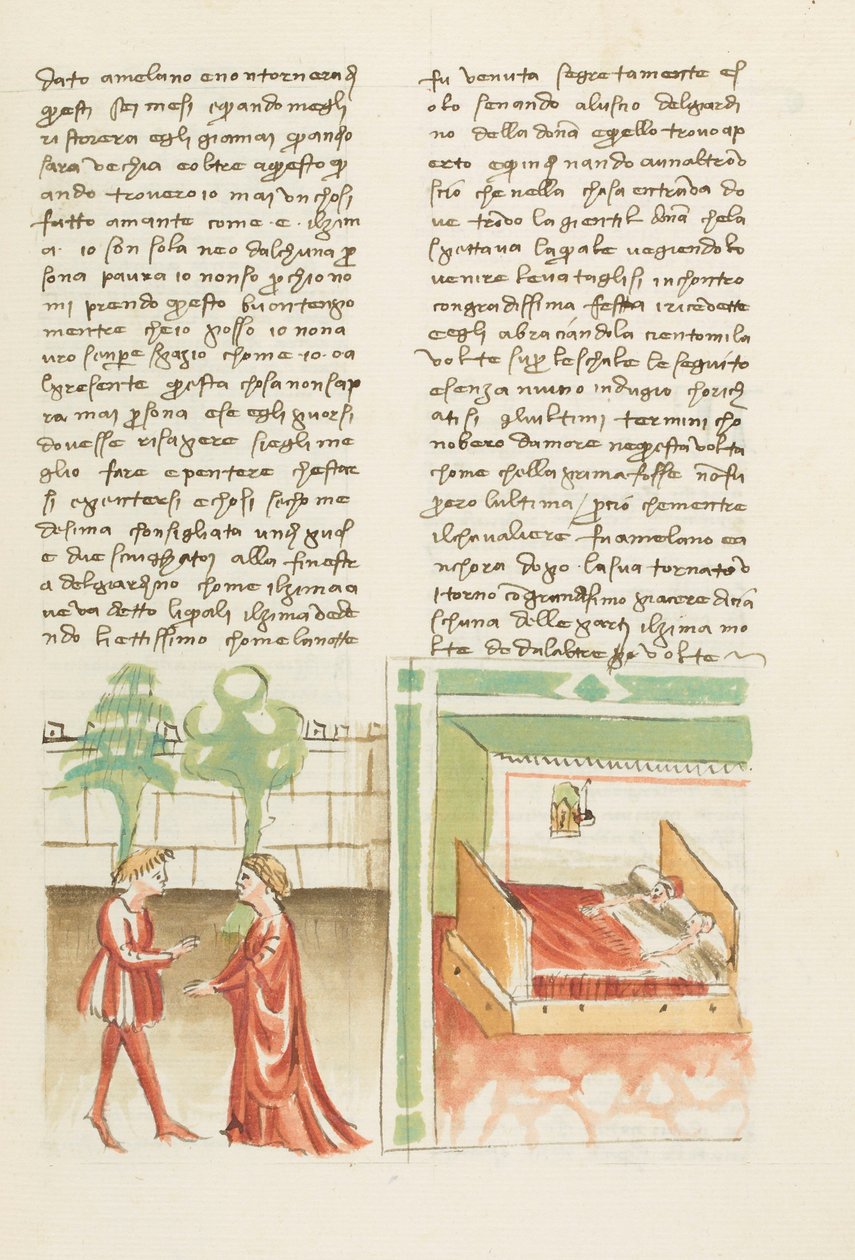 dato amelano enontornerad
questi sei mesi equandomegli
ristorera egli giamai quando
sara vechia eoltre aquesto qu
ando trovero io mai un chosi
fatto amante come · e · ilzim
a · io son sola neo dalchuna per
sona paura io nonso perchio no
mi prendo questo buontenpo
mentre cheio posso io nona
uro senpre spazio chome · io · oa
lpresente questa chosa nonsap
ra mai persona ese egli puorsi
dovesse risapere siegli me
glio fare epentere chestar
si epentersi echosi sechome
desima chonsigliata
e due sciughatoi alla finestr
a delgiardino chome ilzimaa
veva detto liquali ilzimavede
ndo liettissimo chome lanotte
fu venuta segretamente es
olo senando aluscio delgiardi
no della dona equello trovoap
erto equindi nando aunaltrov
scio che nella chasa entrava do
ve trovo la gientil dona chela
spettava laquale vegiendolo
venire levataglisi inchontro
congradissima festa iricevette
eegli abraciandola cientomila
volte super leschale le seguito
esenza niuno indugio chorich
atisi gliultimi termini cho
nobero damore nequesta volta
chome chella prima fosse nonfu
pero lultima / percio chementre
ilchavaliere fu amelano ea
nchora dopo · lasua tornatavv
itorno congrandisimo piacere dicia
schuna delle parti ilzima mo
lte dedalaltre volte